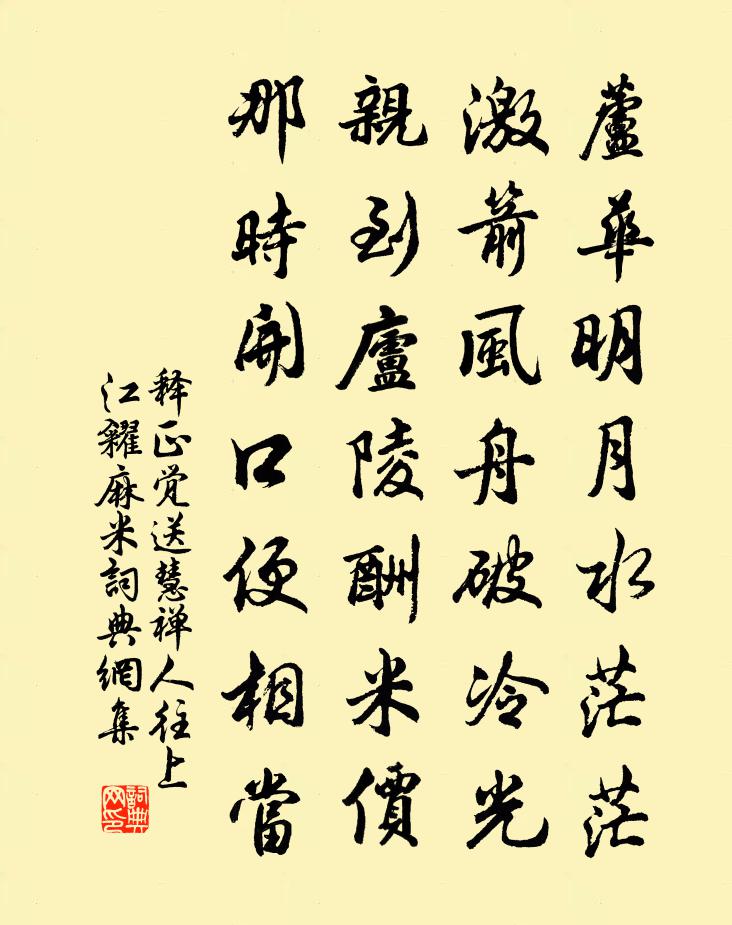 蘆華明月水茫茫
激箭風舟破冷光
親到廬陵酬米價
那時開口便相當
释正觉送慧禅人往上
江糴麻米詞典網集
詞典网印